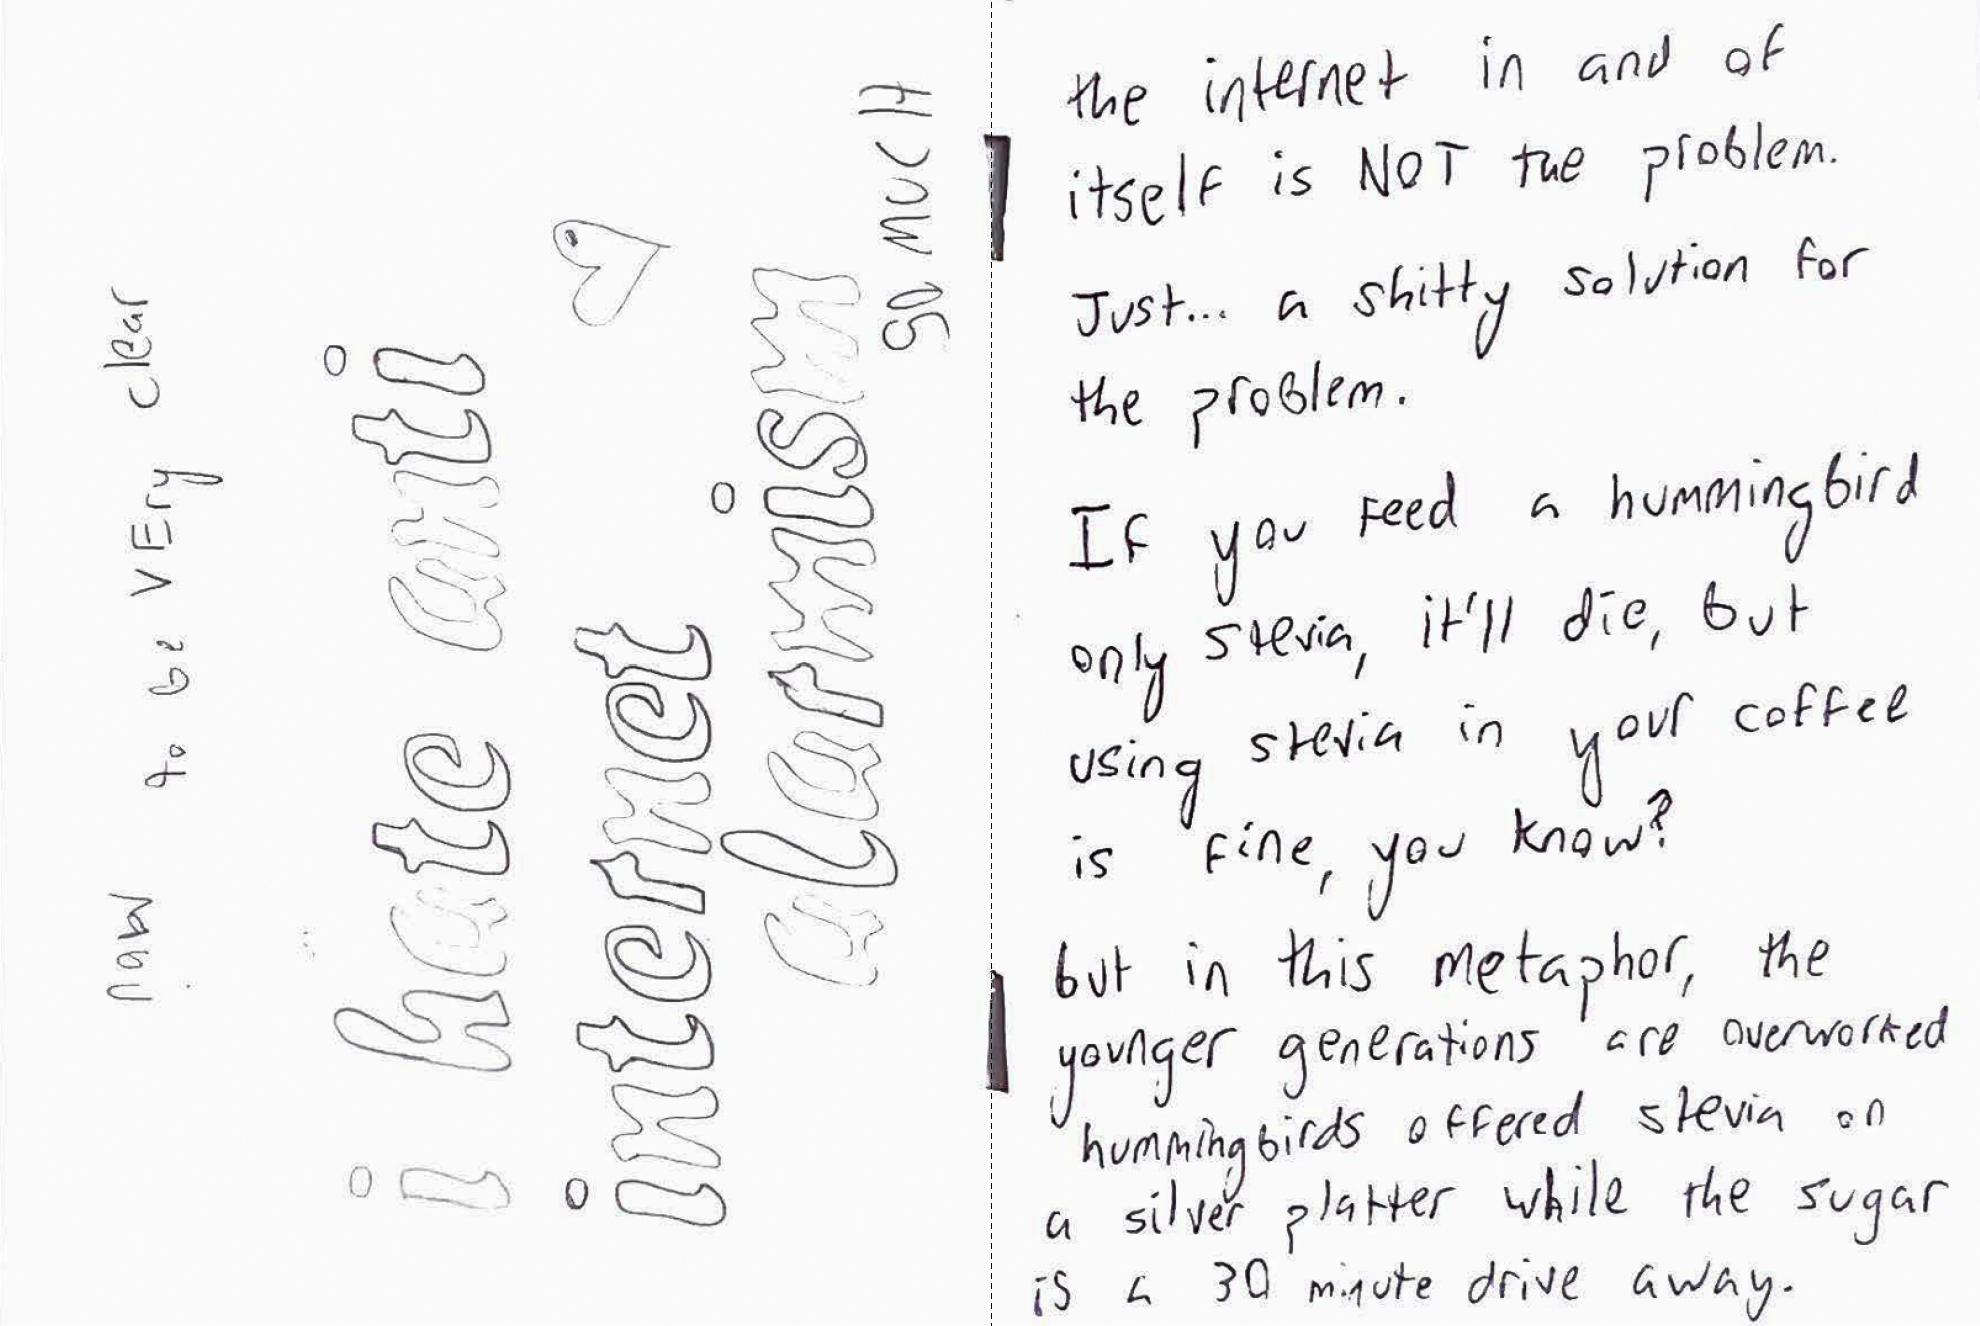 now to be VEry clear
i hate anti
internet
alarmism
so mucH
the internet in and of
itself is NOT the problem.
Just... a shitty solution for
the problem.
If you feed a hummingbird
only stevia, it'll die, but
using stevia in your coffee
is fine, you know?
but in this metaphor, the
younger generations are overworked
hummingbirds offered stevia on
a silver platter while the sugar
is a 30 minute drive away.